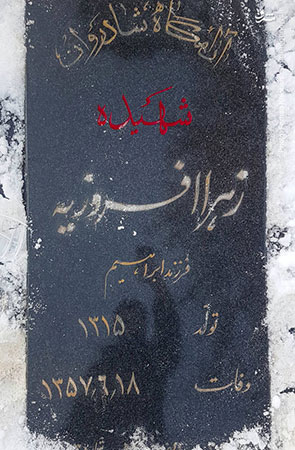 آرامگاه شادروان
شهیده
زهرا افروزیه
فرزند ابراهیم
تولد ۱۳۱۵
وفات ۱۳۵۷٫۶٫۱۸